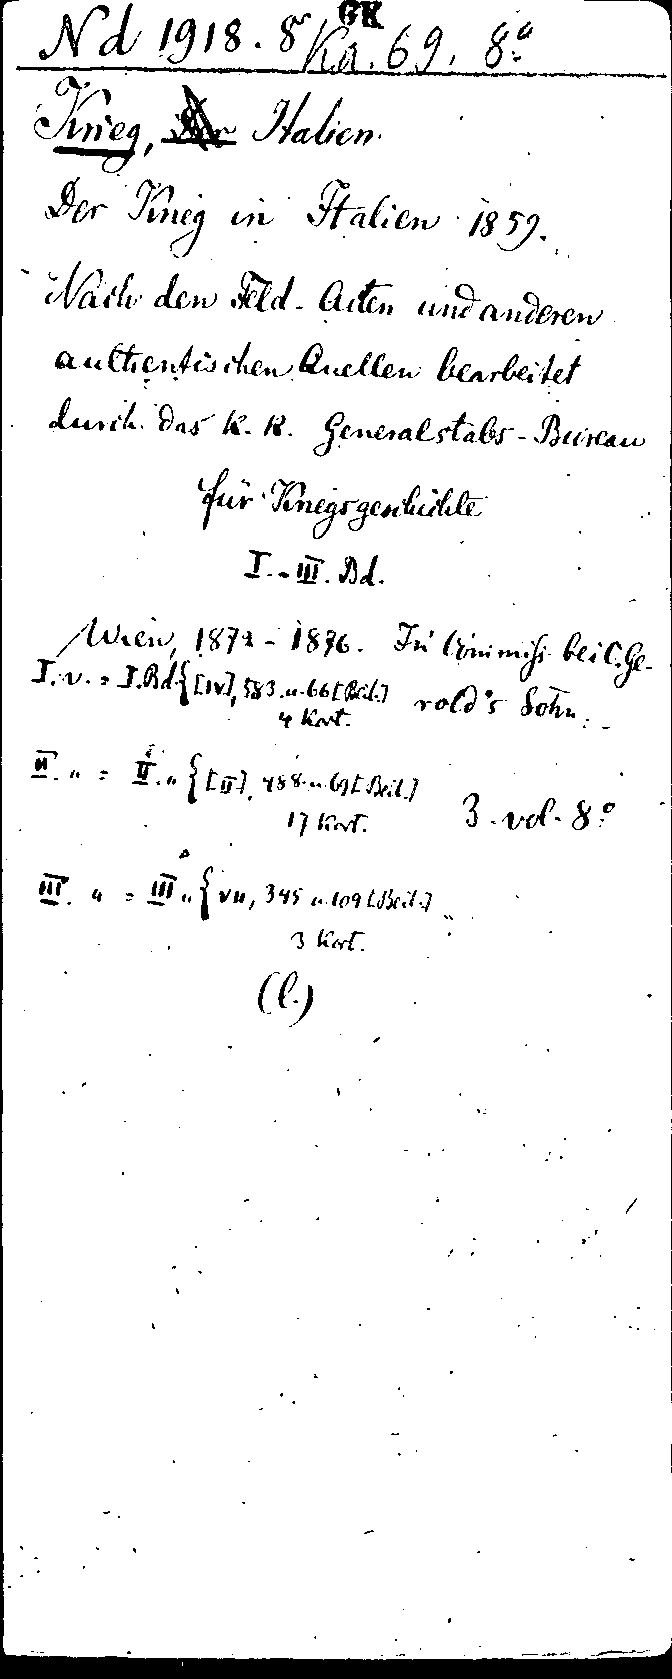 GK
Nd 1918. 8º Ka. 69. 8º
Krieg, Der Italien.
Der Krieg in Italien 1859.
Nach den Feld-Acten und anderen
authentischen Quellen bearbeitet
durch das k. k. Generalstabs-Bureau
für Kriegsgeschichte
I.-III. Bd.
Wien, 1872-1876. In Commiss. bei C. Ge-
rold's Sohn.
I. v. = I. Bd. {[IV], 583 u. 66 [Beil.]
4 Kart.
II. " = II. " {[II], 488 u. 69 [Beil.]
17 Kart.
3. vol. 8º
III. " = III " {VII, 345 u. 109 [Beil.]
3 Kart.
(l.)